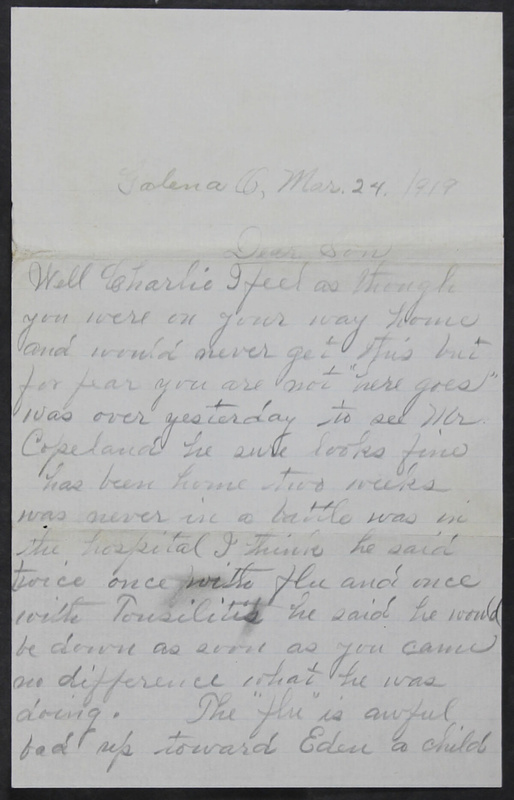 Galena O, Mar. 24. 1919
Dear Son
Well Charlie I feel as though
you were on your way home
and would never get this but
for fear you are not "here goes"
was over yesterday to see Mr.
Copeland he sure looks fine
has been home two weeks
was never in a battle was in
the hospital I think he said
twice once with flu and once
with Tonsilitis he said he would
be down as soon as you came
no difference what he was
doing. The "flu" is awful
bad up toward Eden a child